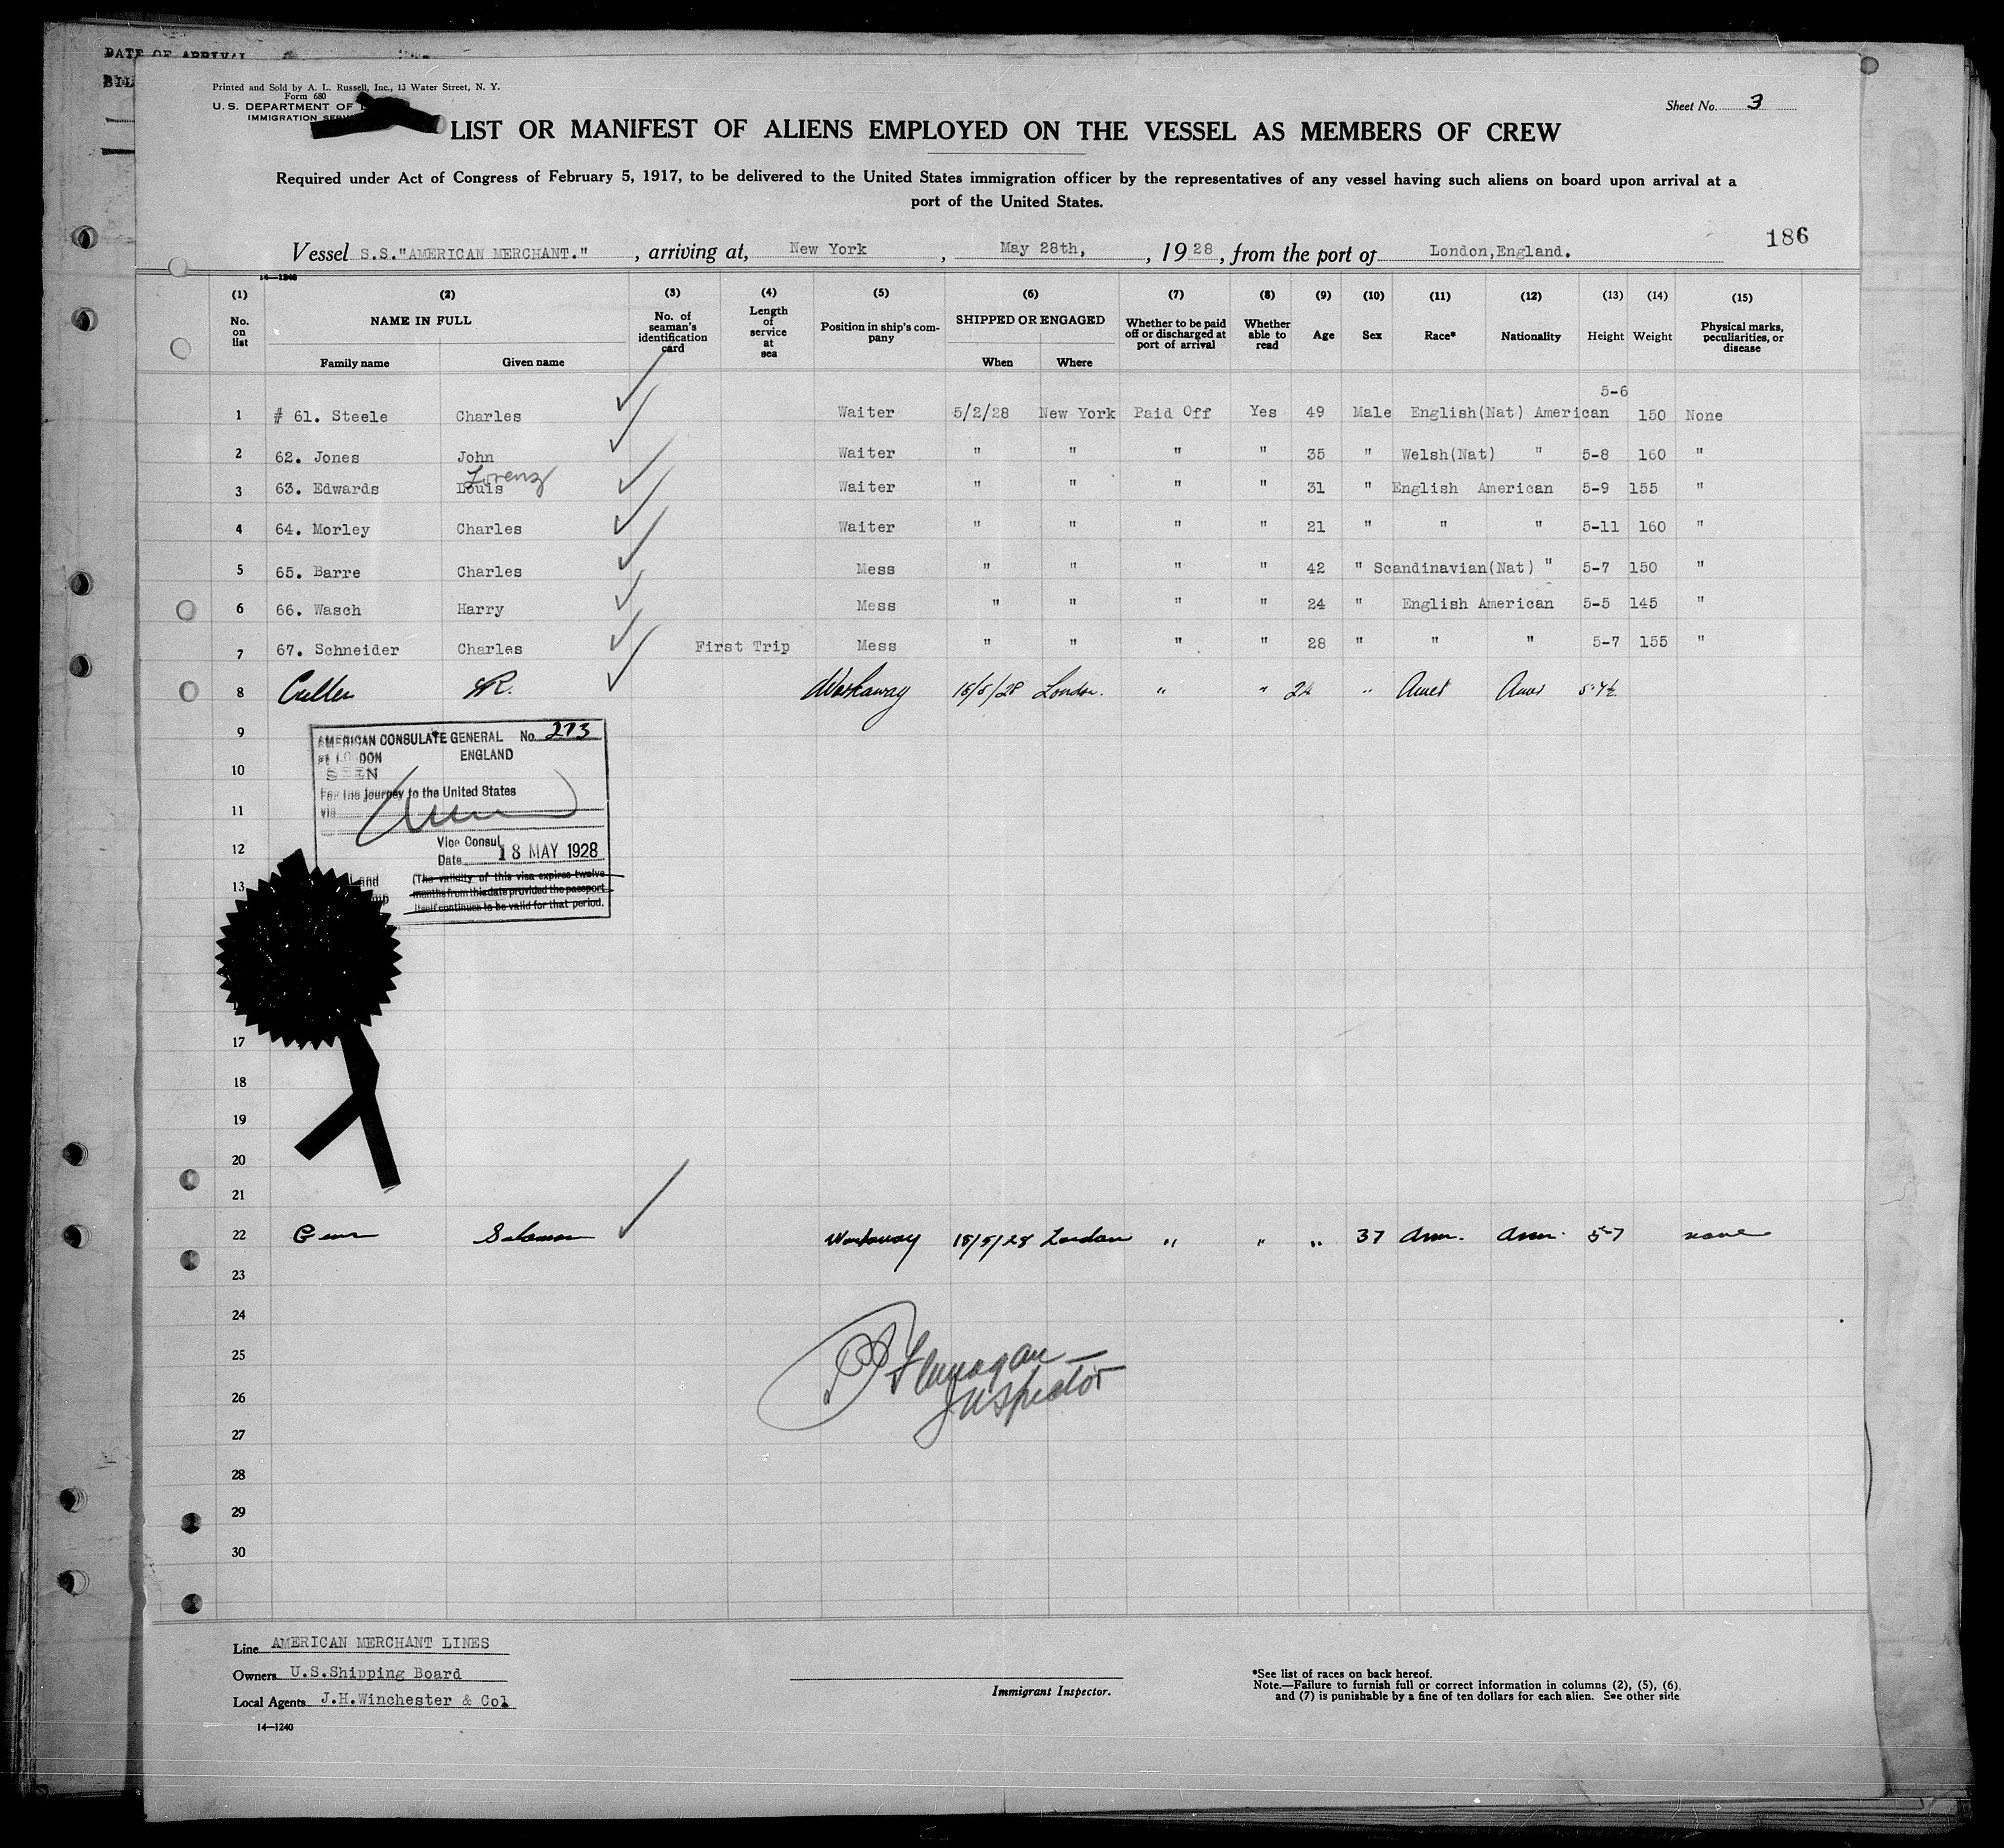 DATE OF ARRIVAL
Printed and Sold by A. L. Russell, Inc., 13 Water Street, N. Y.
Form 680
U. S. DEPARTMENT OF
IMMIGRATION
Sheet No. 3
LIST OR MANIFEST OF ALIENS EMPLOYED ON THE VESSEL AS MEMBERS OF CREW
Required under Act of Congress of February 5, 1917, to be delivered to the United States immigration officer by the representatives of any vessel having such aliens on board upon arrival at a
port of the United States.
186
Vessel S.S."AMERICAN MERCHANT." , arriving at, New York , May 28th, , 1928, from the port of London,England.
14—1240
(1) (2) (3) (4) (5) (6) (7) (8) (9) (10) (11) (12) (13) (14) (15)
No. on list NAME IN FULL Family name Given name No. of seaman's identification card Length of service at sea Position in ship's company SHIPPED OR ENGAGED When Where Whether to be paid off or discharged at port of arrival Whether able to read Age Sex Race* Nationality Height Weight Physical marks, peculiarities, or disease
5-6
1 # 61. Steele Charles Waiter 5/2/28 New York Paid Off Yes 49 Male English(Nat) American 150 None
2 62. Jones John Waiter " " " " 35 " Welsh(Nat) " 5-8 160 "
Lorenz
3 63. Edwards Louis Waiter " " " " 31 " English American 5-9 155 "
4 64. Morley Charles Waiter " " " " 21 " " " 5-11 160 "
5 65. Barre Charles Mess " " " " 42 " Scandinavian(Nat) " 5-7 150 "
6 66. Wasch Harry Mess " " " " 24 " English American 5-5 145 "
7 67. Schneider Charles First Trip Mess " " " " 28 " " " 5-7 155 "
8 Cullen R. Workaway 18/5/28 London. " " 24 " Amer Amer 5-7½
9
AMERICAN CONSULATE GENERAL No. 273
LONDON ENGLAND
10
SEEN
For the journey to the United States
11
via
12
Vice Consul
Date 18 MAY 1928
13
(The validity of this visa expires twelve
months from this date provided the passport
itself continues to be valid for that period.
17
18
19
20
21
22 Solomon Workaway 18/5/28 London " " " 37 Amer. Amer. 5-7 none
23
24
25 Flanagan
26 Inspector
27
28
29
30
Line AMERICAN MERCHANT LINES
Owners U.S.Shipping Board
Local Agents J.H.Winchester & Co.
14—1240
Immigrant Inspector.
*See list of races on back hereof.
Note.—Failure to furnish full or correct information in columns (2), (5), (6),
and (7) is punishable by a fine of ten dollars for each alien. See other side